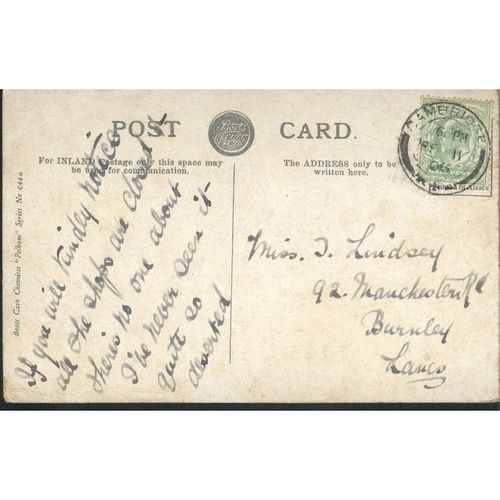 POST CARD.
Boots Cash Chemists
For INLAND Postage only this space may
be used for communication.
The ADDRESS only to be
written here.
Boots Cash Chemists "Pelham" Series No 644a
CAMBRIDGE
6. PM
11
06
in Alsace
If you will kindly notice
all the shops are about
theris no one about
I've never seen it
quite so
deserted
Miss. J. Lindsey
92. Manchester Rd
Burnley
Lancs